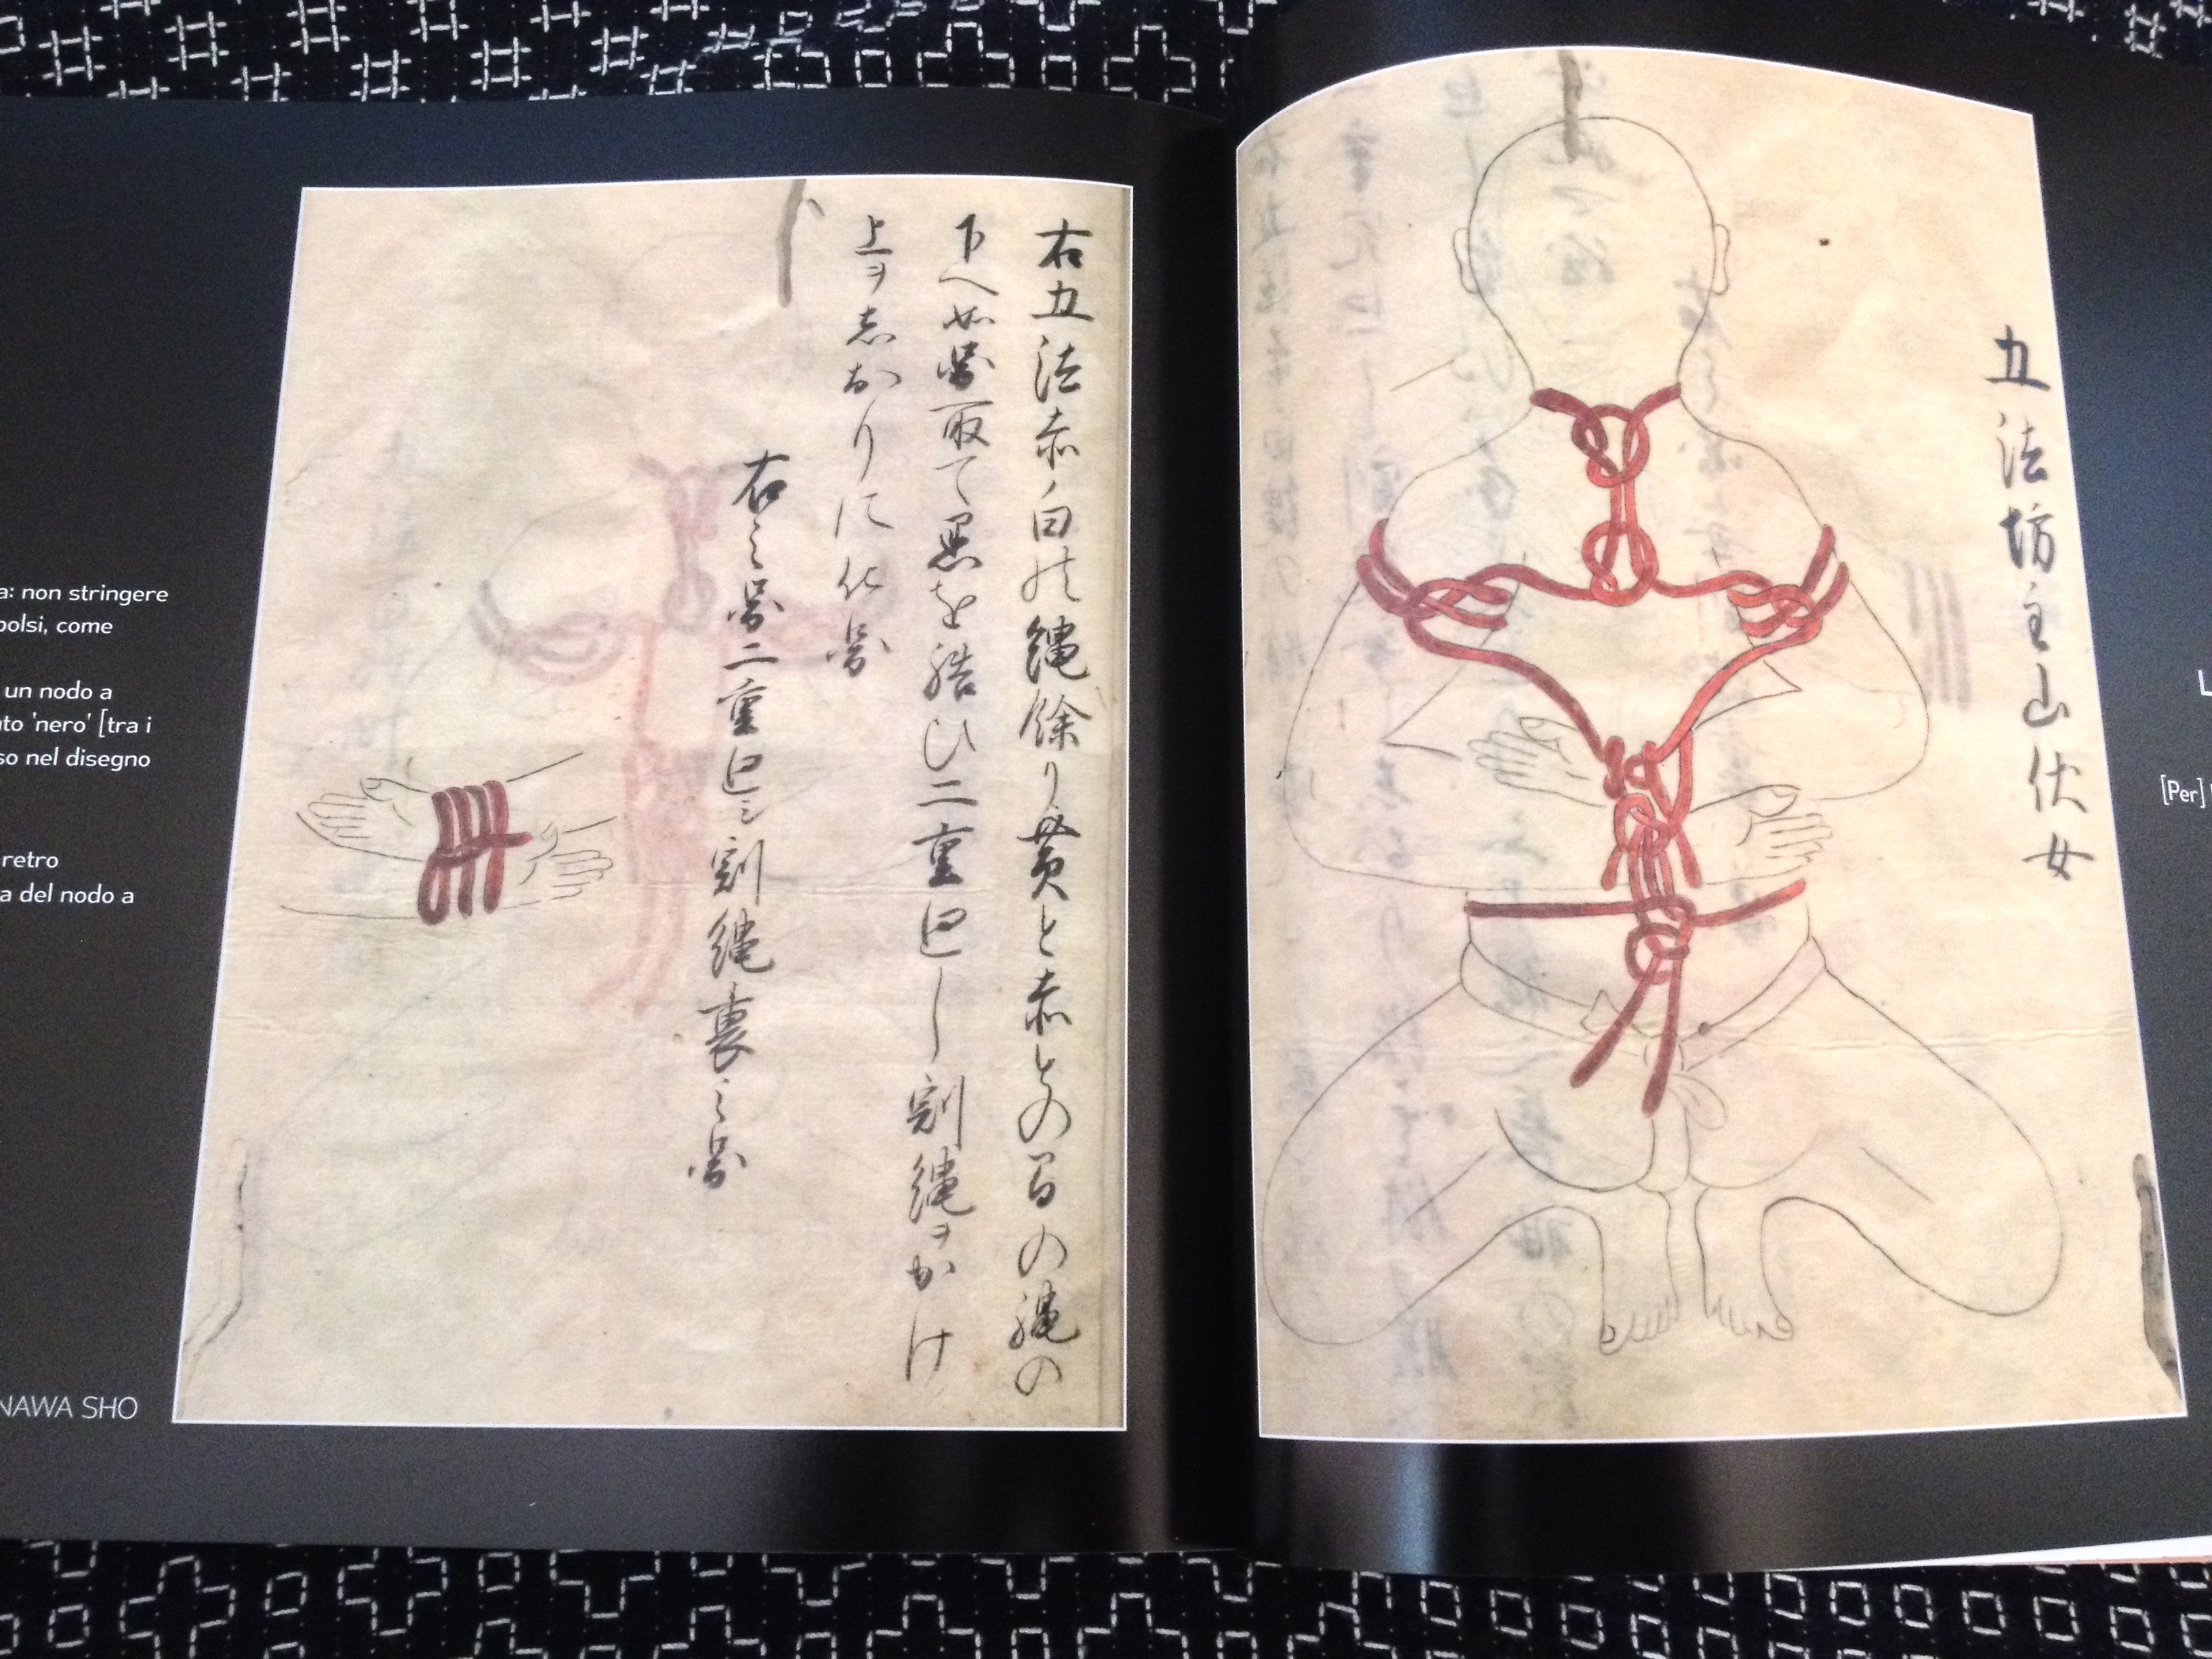 a: non stringere
polsi, come
un nodo a
nto 'nero' [tra i
so nel disegno
retro
a del nodo a
NAWA SHO
右五法赤白の縄餘り黄と赤との間の縄の
下へ如図取て黒を結ひ二重廻し割縄ヲかけ
上ヲ志わりに仕図
右之図二重廻之割縄裏之図
五法坊主山伏女
L
[Per]